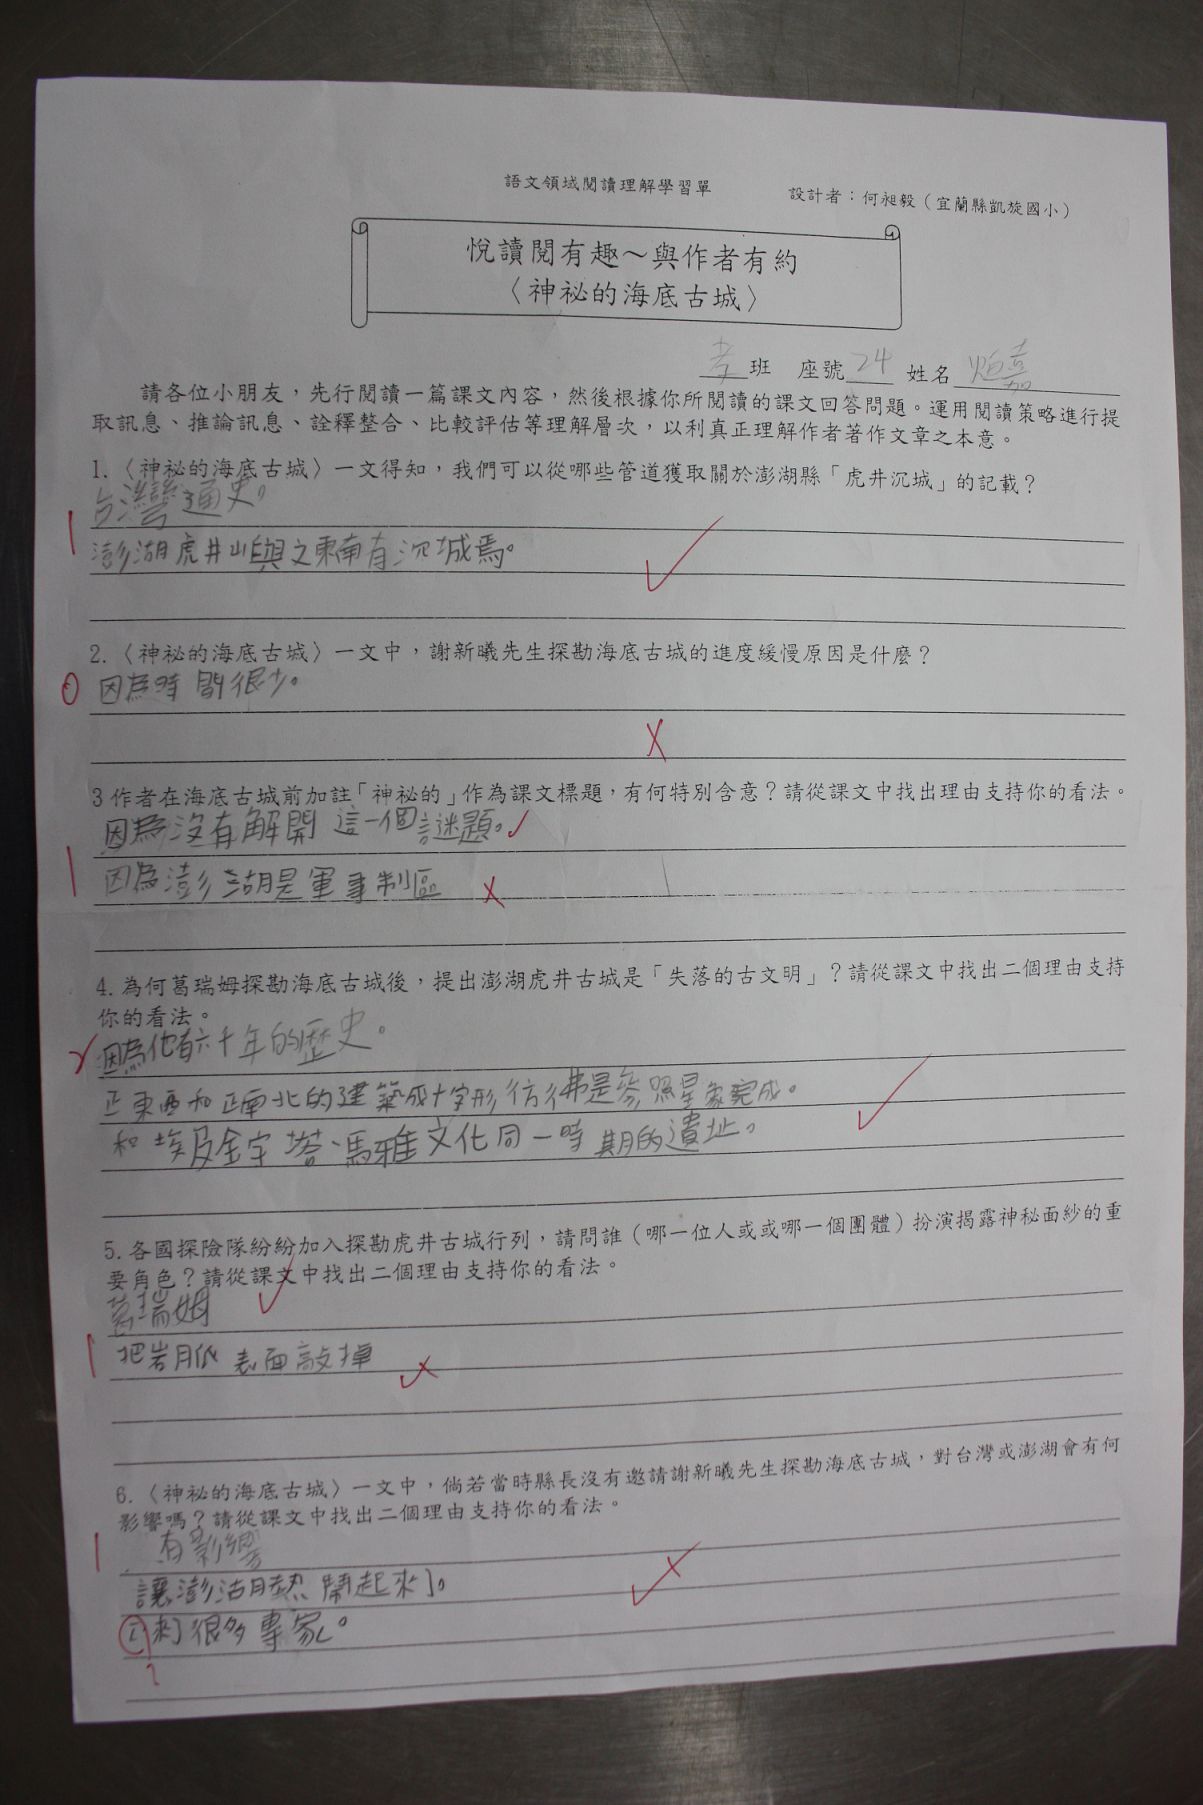 語文領域閱讀理解學習單
設計者：何昶毅（宜蘭縣凱旋國小）
悅讀閱有趣～與作者有約
〈神祕的海底古城〉
孝班 座號24 姓名
請各位小朋友，先行閱讀一篇課文內容，然後根據你所閱讀的課文回答問題。運用閱讀策略進行提
取訊息、推論訊息、詮釋整合、比較評估等理解層次，以利真正理解作者著作文章之本意。
1.〈神祕的海底古城〉一文得知，我們可以從哪些管道獲取關於澎湖縣「虎井沉城」的記載？
台灣通史。
1
澎湖虎井山嶼之東南有沉城焉。
2.〈神祕的海底古城〉一文中，謝新曦先生探勘海底古城的進度緩慢原因是什麼？
0 因為時間很少。
3 作者在海底古城前加註「神祕的」作為課文標題，有何特別含意？請從課文中找出理由支持你的看法。
因為沒有解開這一個謎題。
1 因為澎湖是軍事制區
4. 為何葛瑞姆探勘海底古城後，提出澎湖虎井古城是「失落的古文明」？請從課文中找出二個理由支持
你的看法。
2 因為他有六千年的歷史。
正東西和正南北的建築成十字形彷彿是參照星象完成。
和埃及金字塔馮雅文化同一時期的遺址。
5. 各國探險隊紛紛加入探勘虎井古城行列，請問誰（哪一位人或或哪一個團體）扮演揭露神秘面紗的重
要角色？請從課文中找出二個理由支持你的看法。
葛瑞姆
1 把岩脈表面敲掉
6.〈神祕的海底古城〉一文中，倘若當時縣長沒有邀請謝新曦先生探勘海底古城，對台灣或澎湖會有何
影響嗎？請從課文中找出二個理由支持你的看法。
1 有影響
讓澎湖熱鬧起來了。
來了很多專家。
?